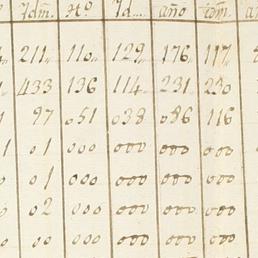 Ydm. No. Yd... año
211,, 110,, 129,, 176,, 117,,
433 136 114 231 220
97 051 038 086 116
1 01 000 000 000 000
01 000 000 000 000
02 000 000 000 000
00 000 000 000 000